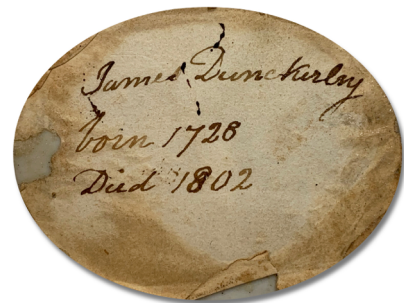 James Dunckerley
born 1728
Died 1802